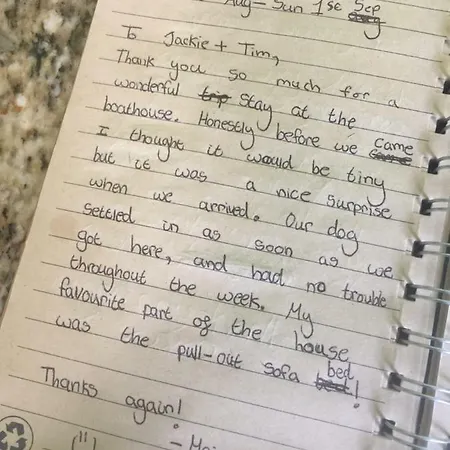 Aug - Sun 1st Sep
To Jackie + Tim,
Thank you so much for a
wonderful trip stay at the
boathouse. Honestly before we came
I thought it would be tiny
but it was a nice surprise
when we arrived. Our dog
settled in as soon as we
got here, and had no trouble
throughout the week. My
favourite part of the house
was the pull-out sofa bed!
Thanks again!